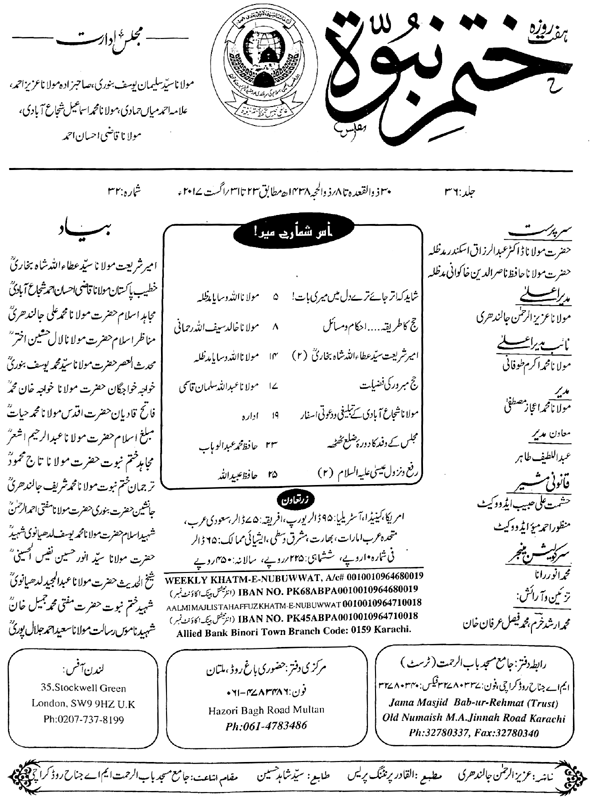 ہفت روزہ
ختم نبوۃ
مجلس
مجلس ادارت
مولانا سیّد سلیمان یوسف بنوری، صاحبزادہ مولانا عزیز احمد،
علامہ احمد میاں حمادی، مولانا محمد اسماعیل شجاع آبادی،
مولانا قاضی احسان احمد
جلد: ۳۶
۳۰ ذوالقعدہ تا ۸/ذوالحجہ ۱۴۳۸ھ مطابق ۲۳ تا ۳۱/اگست ۲۰۱۷ء
شمارہ: ۳۲
سرپرست
حضرت مولانا ڈاکٹر عبدالرزاق اسکندر مدظلہ
حضرت مولانا حافظ ناصر الدین خاکوانی مدظلہ
مدیر اعلیٰ
مولانا عزیز الرحمٰن جالندھری
نائب مدیر اعلیٰ
مولانا محمد اکرم طوفانی
مدیر
مولانا محمد اعجاز مصطفیٰ
معاون مدیر
عبداللطیف طاہر
قانونی مشیر
حشمت علی حبیب ایڈووکیٹ
منظور احمد میو ایڈووکیٹ
سرکولیشن منیجر
محمد انور رانا
تزئین و آرائش:
محمد ارشد خرم، محمد فیصل عرفان خان
اس شمارے میں!
شاید کہ اتر جائے ترے دل میں میری بات! ۵ مولانا اللہ وسایا مدظلہ
حج کا طریقہ.... احکام و مسائل ۸ مولانا خالد سیف اللہ رحمانی
امیر شریعت سیّد عطاء اللہ شاہ بخاریؒ (۲) ۱۴ مولانا اللہ وسایا مدظلہ
حج مبرور کی فضیلت ۱۷ مولانا عبداللہ سلمان قاسمی
مولانا شجاع آبادی کے تبلیغی و دعوتی اسفار ۱۹ ادارہ
مجلس کے وفد کا دورہ ضلع ٹھٹھہ ۲۳ حافظ محمد عبدالوہاب
رفع و نزول عیسیٰ علیہ السلام (۲) ۲۵ حافظ عبیداللہ
زرتعاون
امریکا، کینیڈا، آسٹریلیا: ۹۵ ڈالر یورپ، افریقہ: ۷۵ ڈالر، سعودی عرب،
متحدہ عرب امارات، بھارت، مشرق وسطیٰ، ایشیائی ممالک: ۶۵ ڈالر
فی شمارہ ۱۰ روپے، ششماہی: ۲۲۵ روپے، سالانہ: ۳۵۰ روپے
WEEKLY KHATM-E-NUBUWWAT, A/c# 0010010964680019
IBAN NO. PK68ABPA0010010964680019 (انٹرنیشنل بینک اکاؤنٹ نمبر)
AALMI MAJLISTAHAFFUZKHATM-E-NUBUWWAT 0010010964710018
IBAN NO. PK45ABPA0010010964710018 (انٹرنیشنل بینک اکاؤنٹ نمبر)
Allied Bank Binori Town Branch Code: 0159 Karachi.
بیاد
امیر شریعت مولانا سیّد عطاء اللہ شاہ بخاریؒ
خطیب پاکستان مولانا قاضی احسان احمد شجاع آبادیؒ
مجاہد اسلام حضرت مولانا محمد علی جالندھریؒ
مناظر اسلام حضرت مولانا لال حسین اخترؒ
محدث العصر حضرت مولانا سیّد محمد یوسف بنوریؒ
خواجہ خواجگان حضرت مولانا خواجہ خان محمدؒ
فاتح قادیان حضرت اقدس مولانا محمد حیاتؒ
مبلغ اسلام حضرت مولانا عبدالرحیم اشعرؒ
مجاہد ختم نبوت حضرت مولانا تاج محمودؒ
ترجمان ختم نبوت مولانا محمد شریف جالندھریؒ
جانشین بنوری حضرت مولانا مفتی احمد الرحمٰنؒ
شہید اسلام حضرت مولانا محمد یوسف لدھیانوی شہیدؒ
حضرت مولانا سیّد انور حسین نفیس الحسینیؒ
شیخ الحدیث حضرت مولانا عبدالمجید لدھیانویؒ
شہید ختم نبوت حضرت مفتی محمد جمیل خانؒ
شہید ناموس رسالت مولانا سعید احمد جلال پوریؒ
رابطہ دفتر: جامع مسجد باب الرحمت (ٹرسٹ)
ایم اے جناح روڈ کراچی، فون: ۳۲۷۸۰۳۳۷ فیکس: ۳۲۷۸۰۳۴۰
Jama Masjid Bab-ur-Rehmat (Trust)
Old Numaish M.A.Jinnah Road Karachi
Ph:32780337, Fax:32780340
مرکزی دفتر: حضوری باغ روڈ، ملتان
فون: ۰۶۱-۴۷۸۳۴۸۶
Hazori Bagh Road Multan
Ph:061-4783486
لندن آفس:
35.Stockwell Green
London, SW9 9HZ U.K
Ph:0207-737-8199
ناشر: عزیز الرحمٰن جالندھری مطبع: القادر پرنٹنگ پریس طابع: سیّد شاہد حسین مقام اشاعت: جامع مسجد باب الرحمت ایم اے جناح روڈ کراچی